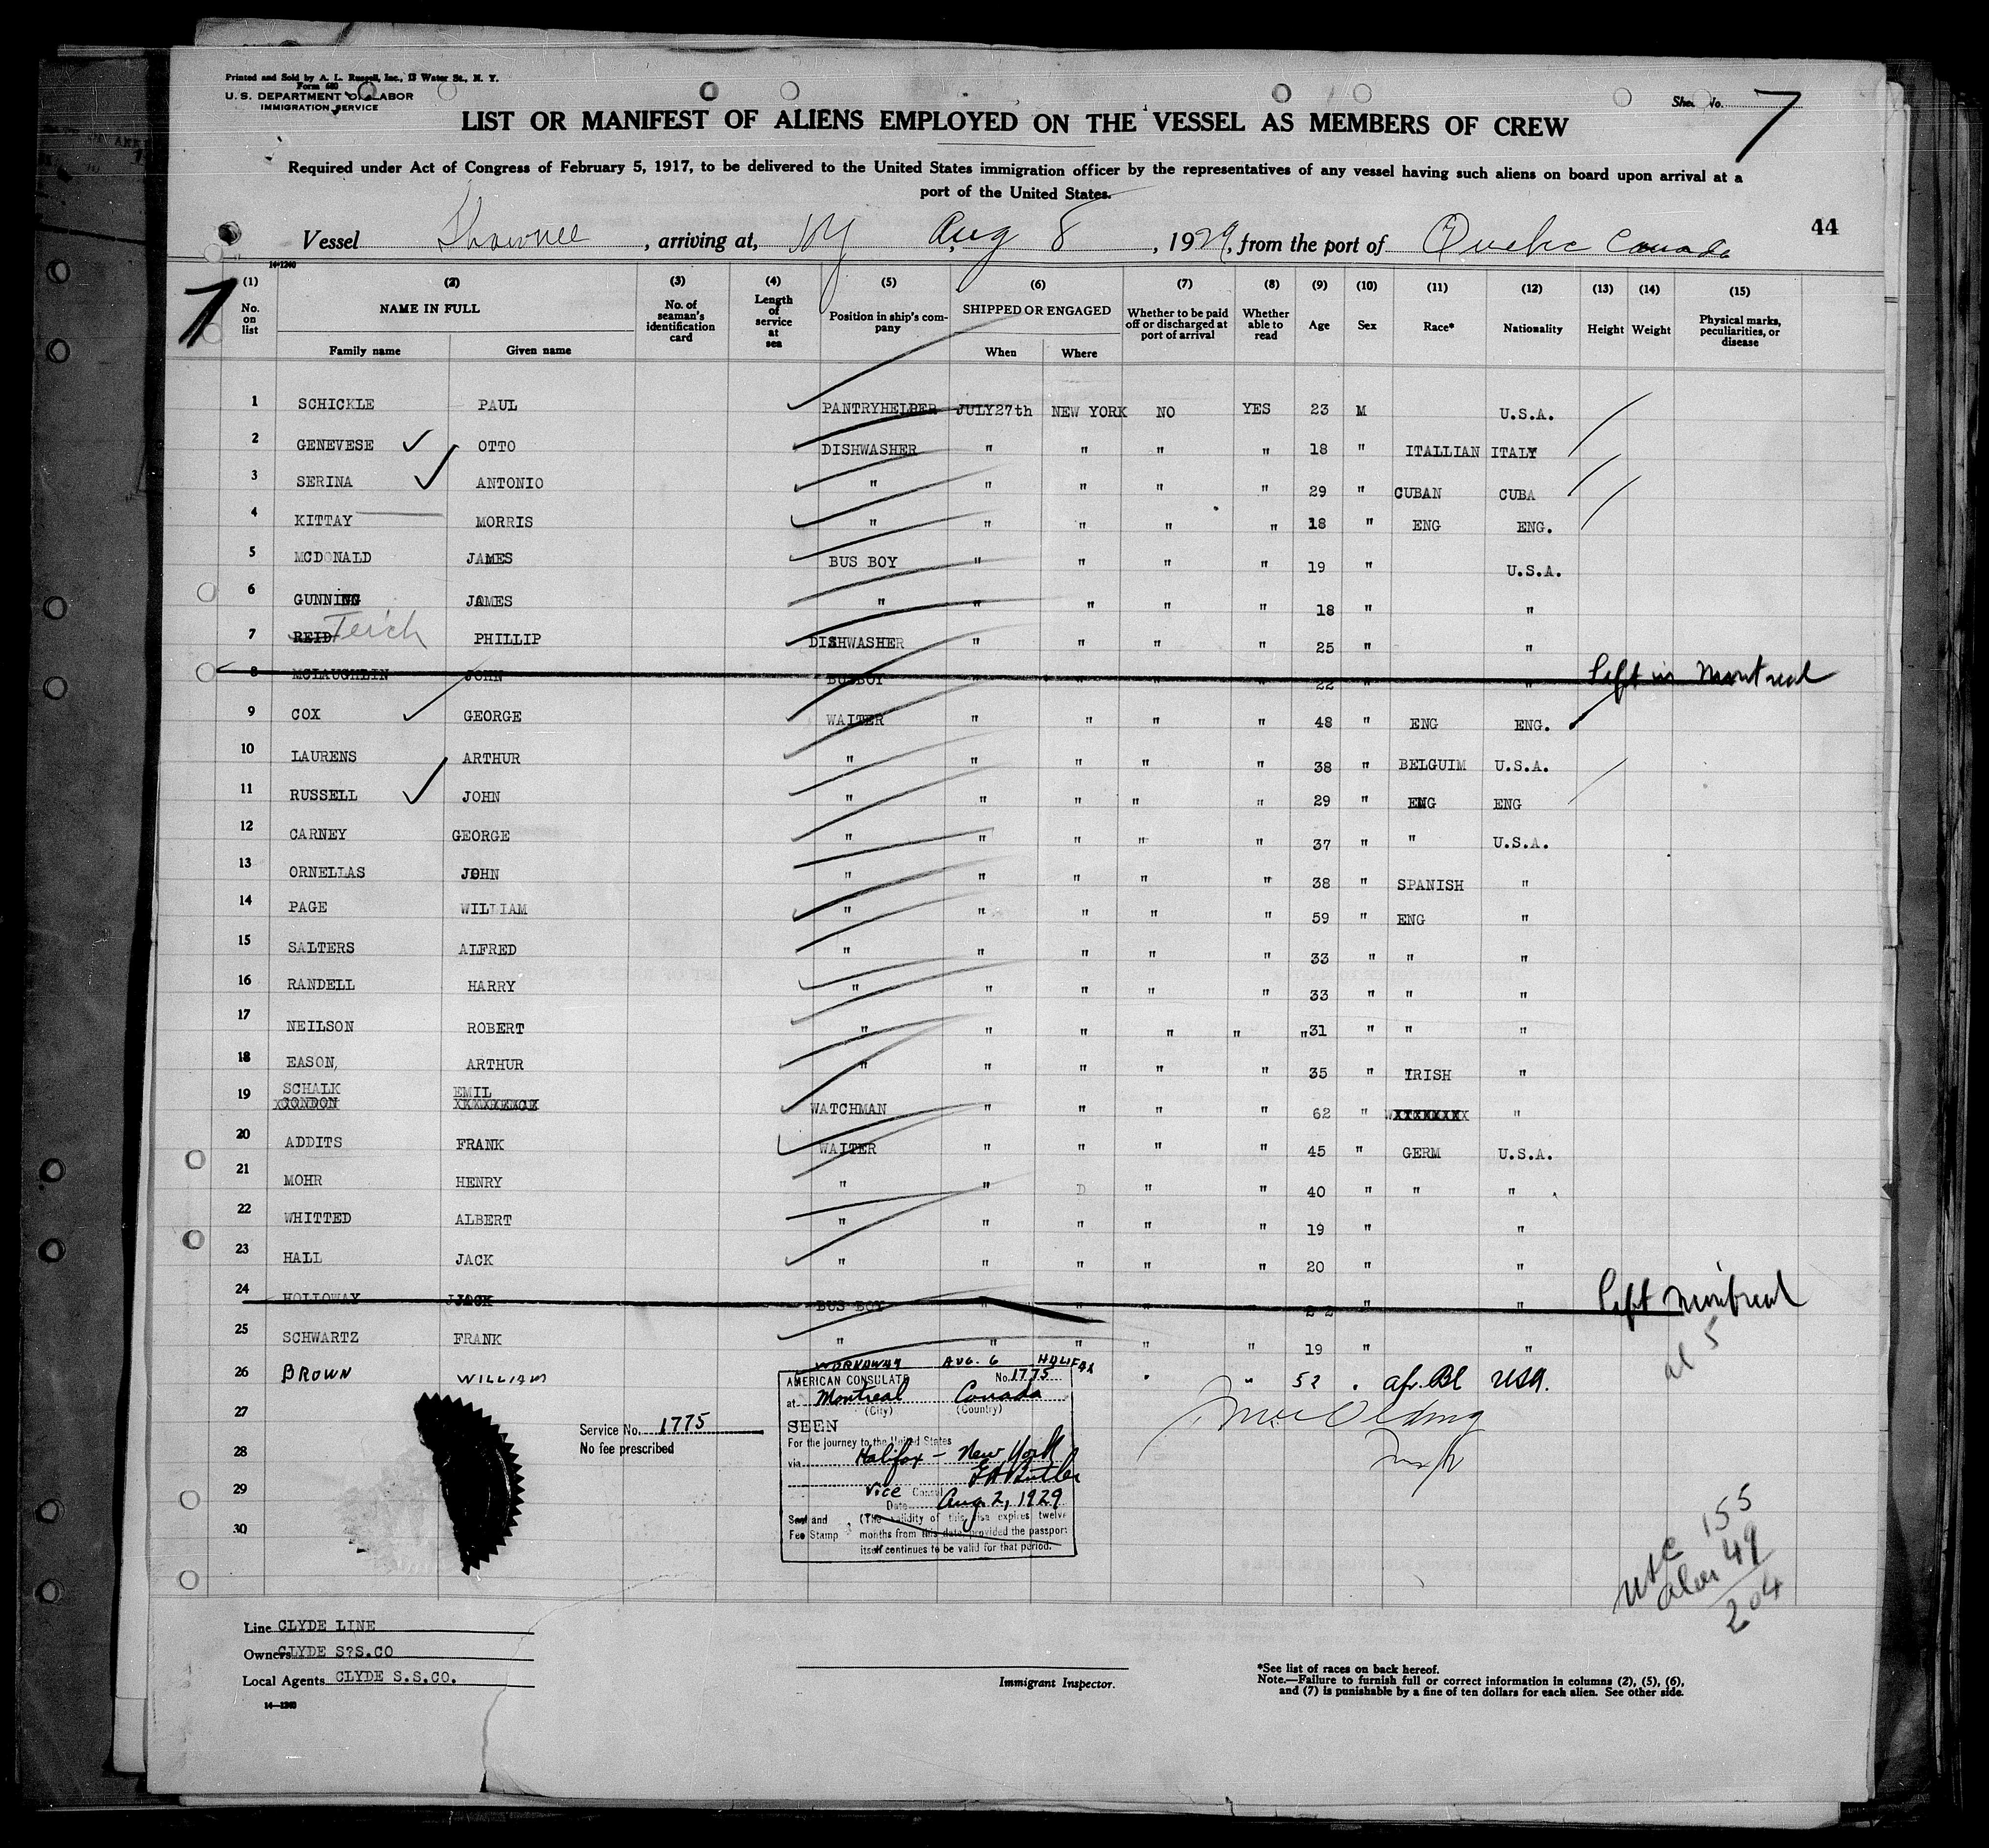 Printed and Sold by A. L. Russell, Inc., 13 Water St., N. Y.
Form 680
U. S. DEPARTMENT OF LABOR
IMMIGRATION SERVICE
Sheet No. 7
LIST OR MANIFEST OF ALIENS EMPLOYED ON THE VESSEL AS MEMBERS OF CREW
Required under Act of Congress of February 5, 1917, to be delivered to the United States immigration officer by the representatives of any vessel having such aliens on board upon arrival at a
port of the United States.
44
Vessel Shawnee, arriving at, NY Aug 8, 1929, from the port of Quebec Canada
14-1240
(1) (2) (3) (4) (5) (6) (7) (8) (9) (10) (11) (12) (13) (14) (15)
No. on list NAME IN FULL Family name Given name No. of seaman's identification card Length of service at sea Position in ship's company SHIPPED OR ENGAGED When Where Whether to be paid off or discharged at port of arrival Whether able to read Age Sex Race* Nationality Height Weight Physical marks, peculiarities, or disease
1 SCHICKLE PAUL PANTRYHELPER JULY27th NEW YORK NO YES 23 M U.S.A.
2 GENEVESE OTTO DISHWASHER " " " " 18 " ITALLIAN ITALY
3 SERINA ANTONIO " " " " " 29 " CUBAN CUBA
4 KITTAY MORRIS " " " " " 18 " ENG ENG.
5 MCDONALD JAMES BUS BOY " " " " 19 " U.S.A.
6 GUNNING JAMES " " " " " 18 " "
7 REID Teich PHILLIP DISHWASHER " " " " 25 " "
8 MCLAUGHLIN JOHN BUSBOY " " " " 22 " " left in Montreal
9 COX GEORGE WAITER " " " " 48 " ENG ENG.
10 LAURENS ARTHUR " " " " " 38 " BELGUIM U.S.A.
11 RUSSELL JOHN " " " " " 29 " ENG ENG
12 CARNEY GEORGE " " " " " 37 " " U.S.A.
13 ORNELLAS JOHN " " " " " 38 " SPANISH "
14 PAGE WILLIAM " " " " " 59 " ENG "
15 SALTERS ALFRED " " " " " 33 " " "
16 RANDELL HARRY " " " " " 33 " " "
17 NEILSON ROBERT " " " " " "31 " " "
18 EASON, ARTHUR " " " " " 35 " IRISH "
19 SCHALK EMIL WATCHMAN " " " " 62 " "
20 ADDITS FRANK WAITER " " " " 45 " GERM U.S.A.
21 MOHR HENRY " " D " " 40 " " "
22 WHITTED ALBERT " " " " " 19 " "
23 HALL JACK " " " " " 20 " "
24 HOLLOWAY JACK BUS BOY " " " 22 " " left Montreal
25 SCHWARTZ FRANK " " " " " 19 " "
al 5
26 BROWN WILLIAM WORKAWAY AUG. 6 HALIFAX " " 52 " afr. Bl USA.
27
28
29
30
AMERICAN CONSULATE No. 1775
at Montreal Canada
(City) (Country)
SEEN
For the journey to the United States
via Halifax - New York
Vice Consul
Date Aug. 2, 1929
Seal and Fee Stamp (The validity of this visa expires twelve
months from this date, provided the passport
itself continues to be valid for that period.
Service No. 1775
No fee prescribed
USC 155
alien 49
204
Line CLYDE LINE
Owners CLYDE S?S.CO
Local Agents CLYDE S.S.CO.
14—1240
Immigrant Inspector.
*See list of races on back hereof.
Note.—Failure to furnish full or correct information in columns (2), (5), (6),
and (7) is punishable by a fine of ten dollars for each alien. See other side.